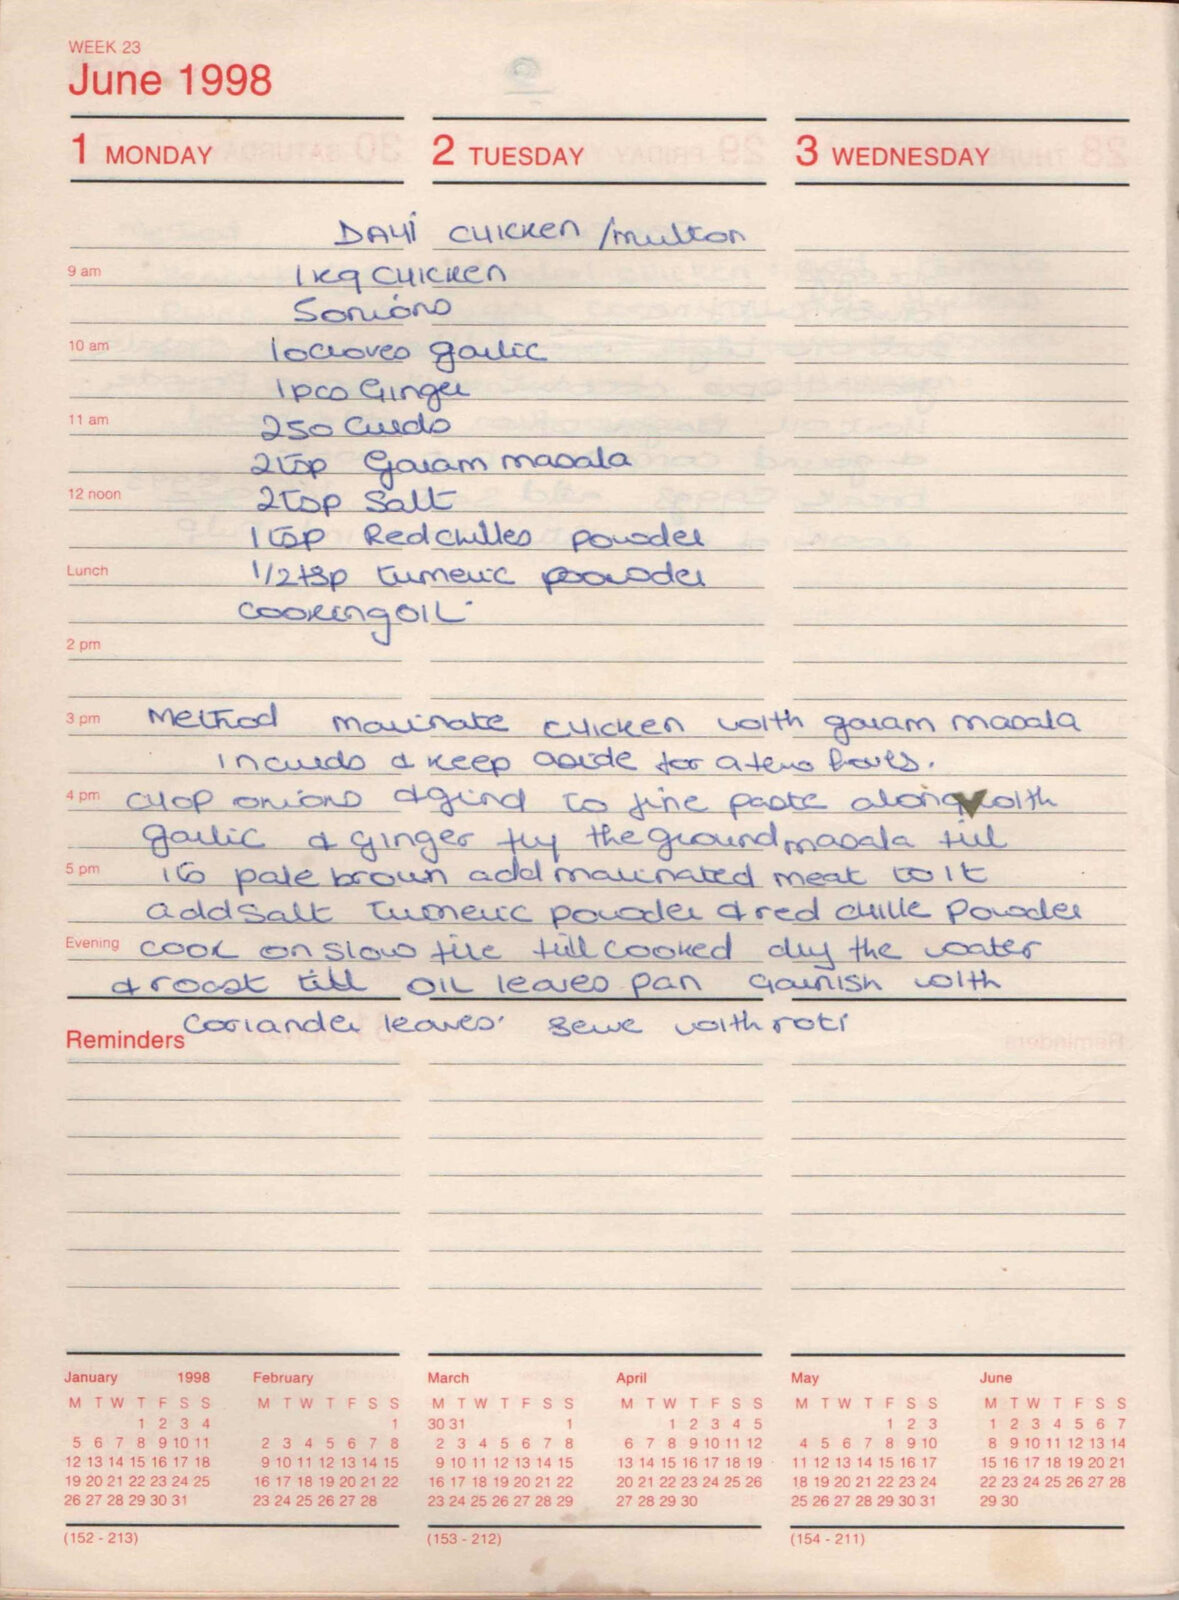 WEEK 23
June 1998
1 MONDAY
2 TUESDAY
3 WEDNESDAY
DAHI CHICKEN /mutton
9 am 1kg CHICKEN
5 onions
10 am 10 cloves garlic
1 pcs Ginger
11 am 250 Curds
2tsp Garam masala
12 noon 2tsp Salt
1 tsp Red chilles powder
Lunch 1/2 tsp tumeric poowder
cooking OIL
2 pm
3 pm Method marinate chicken with garam masala
in curds & keep aside for a few hours.
4 pm Chop onions & gind to fine paste along with
garlic & ginger fry the ground masala till
5 pm its pale brown add marinated meat to it
add salt tumeric powder & red chille powder
Evening cook on slow fire till cooked dry the water
& roast till OIL leaves pan Garnish with
coriander leaves. serve with roti
Reminders
January 1998
M T W T F S S
1 2 3 4
5 6 7 8 9 10 11
12 13 14 15 16 17 18
19 20 21 22 23 24 25
26 27 28 29 30 31
February
M T W T F S S
1
2 3 4 5 6 7 8
9 10 11 12 13 14 15
16 17 18 19 20 21 22
23 24 25 26 27 28
March
M T W T F S S
30 31 1
2 3 4 5 6 7 8
9 10 11 12 13 14 15
16 17 18 19 20 21 22
23 24 25 26 27 28 29
April
M T W T F S S
1 2 3 4 5
6 7 8 9 10 11 12
13 14 15 16 17 18 19
20 21 22 23 24 25 26
27 28 29 30
May
M T W T F S S
1 2 3
4 5 6 7 8 9 10
11 12 13 14 15 16 17
18 19 20 21 22 23 24
25 26 27 28 29 30 31
June
M T W T F S S
1 2 3 4 5 6 7
8 9 10 11 12 13 14
15 16 17 18 19 20 21
22 23 24 25 26 27 28
29 30
(152 - 213)
(153 - 212)
(154 - 211)